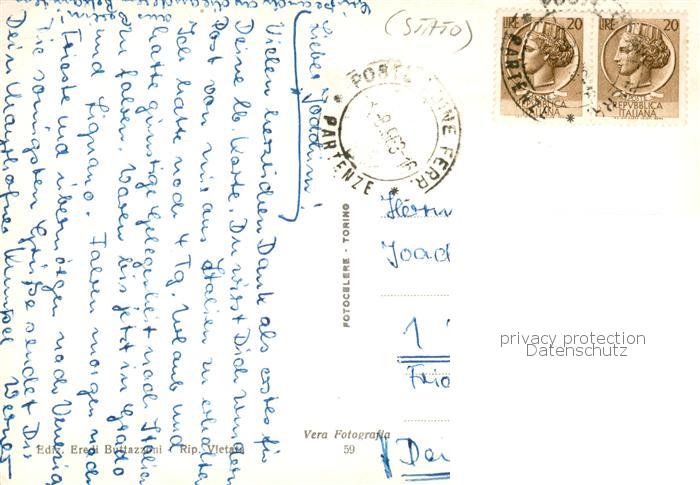 (STATO)
LIRE 20
LIRE 20
REPVBBLICA
ITALIANA
REPVBBLICA
ITALIANA
FERR.
PARTENZE *
Lieber Joachim!
Vielen herzlichen Dank als erstes für
Deine lb. Karte. Du wirst Dich wundern
Post von mir aus Italien zu erhalten
Ich hatte noch 4 Tg. Urlaub und
hatte günstige Gelegenheit nach Italien
zu fahren. Waren bis jetzt in Grado
und Lignano. Fahren morgen nach
Trieste und übermorgen nach Venezia
Die sonnigsten Grüße sendet Dir
Dein Werner
FOTOCELERE - TORINO
Herrn
Joach
1
Frie
Vera Fotografia
Ediz. Eredi Buttazzoni - Rip. Vietata
59
privacy protection
Datenschutz